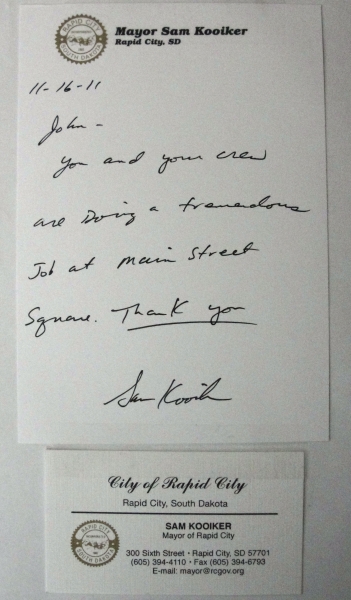 RAPID CITY
SOUTH DAKOTA
Mayor Sam Kooiker
Rapid City, SD
11-16-11
John -
You and your crew
are Doing a tremendous
Job at Main Street
Square. Thank you
Sam Kooiker
City of Rapid City
Rapid City, South Dakota
RAPID CITY
SOUTH DAKOTA
SAM KOOIKER
Mayor of Rapid City
300 Sixth Street • Rapid City, SD 57701
(605) 394-4110 • Fax (605) 394-6793
E-mail: mayor@rcgov.org